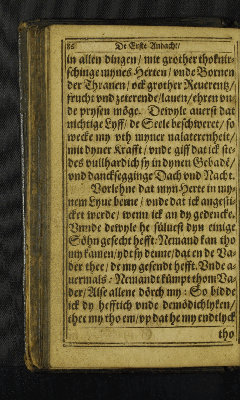 86 De Erste Andacht/
in allen dingen / mit grother thoknir-
schinge mynes Herten / vnde Bornen
der Thranen / ock grother Reuerentz /
frucht vnd zeterende / lauen / ehren vn̄
de prysen möge. Dewyle auerst dat
nichtige Lyff / de Seele beschweret / so
wecke my vth myner nalatericheit /
mit dyner Krafft / vnde giff dat ick ste-
des vullhardich sy in dynen Gebadē /
vnd dancksegginge Dach vnd Nacht.
Vorlehne dat myn Herte in my-
nem Lyue berne / vnde dat ick angesti-
cket werde / wenn ick an dy gedencke.
Vnnde dewyle he süluest dyn einige
Söhn gesecht hefft: Nemand kan tho
my kamen / ydt sy denne / dat en de Va-
der thee / de my gesendt hefft. Vnde a-
uermals: Nemandt kümpt thom Va-
der / Alse allene dörch my: So bidde
ick dy hefftich vnde demödichlyken /
thee my tho em / vp dat he my endtlyck
tho